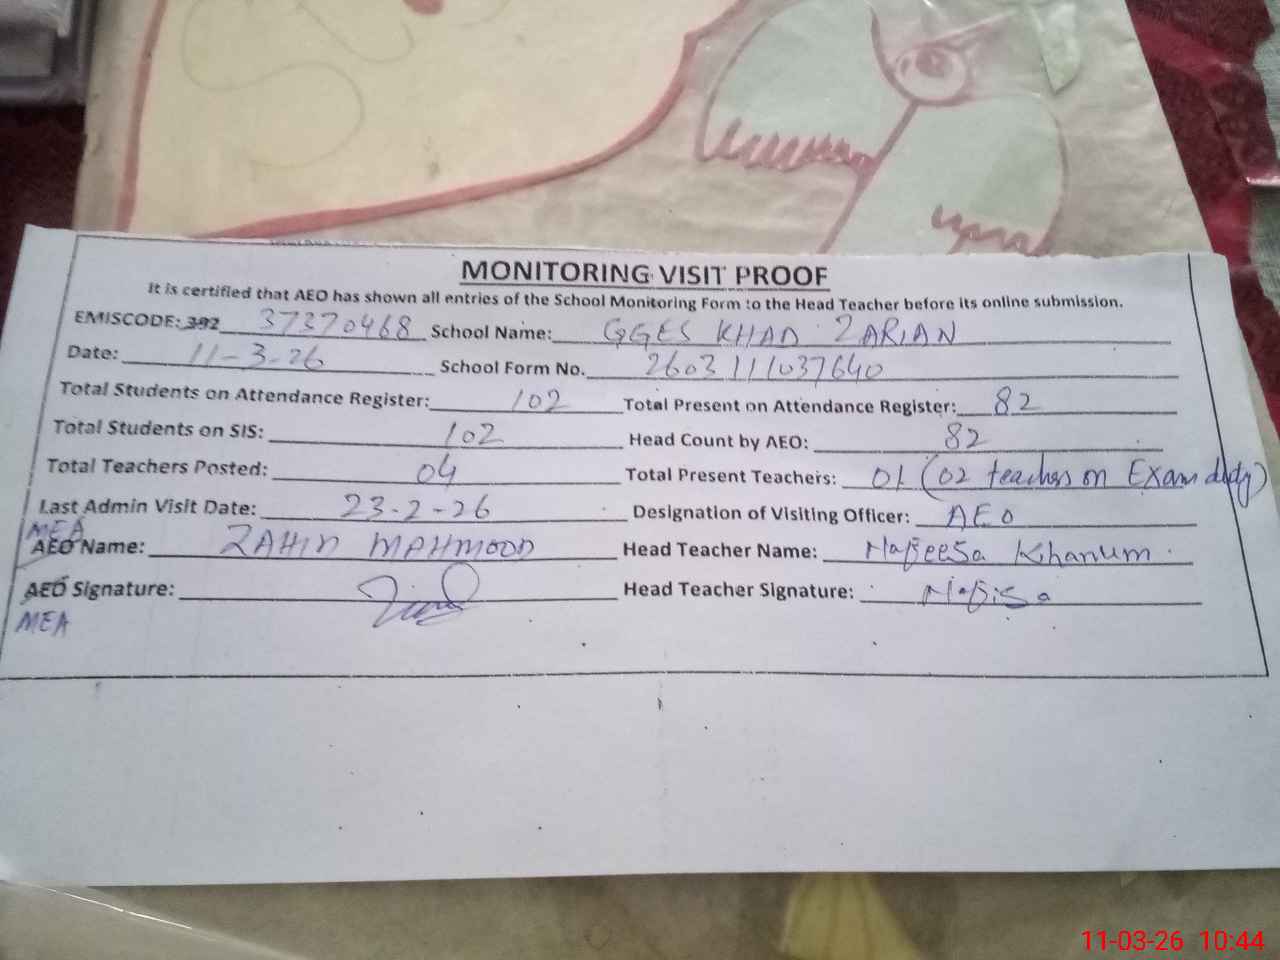 MONITORING VISIT PROOF
It is certified that AEO has shown all entries of the School Monitoring Form to the Head Teacher before its online submission.
EMISCODE: 392 37370468 School Name: GGES KHAD ZARIAN
Date: 11-3-26 School Form No. 2603111037640
Total Students on Attendance Register: 102 Total Present on Attendance Register: 82
Total Students on SIS: 102 Head Count by AEO: 82
Total Teachers Posted: 04 Total Present Teachers: 01 (02 teachers on Exam duty)
Last Admin Visit Date: 23-2-26 Designation of Visiting Officer: AEO
MEA
AEO Name: ZAHID MAHMOOD Head Teacher Name: Nafeesa Khanum.
AEO Signature: Head Teacher Signature: Nafisa
MEA
11-03-26 10:44